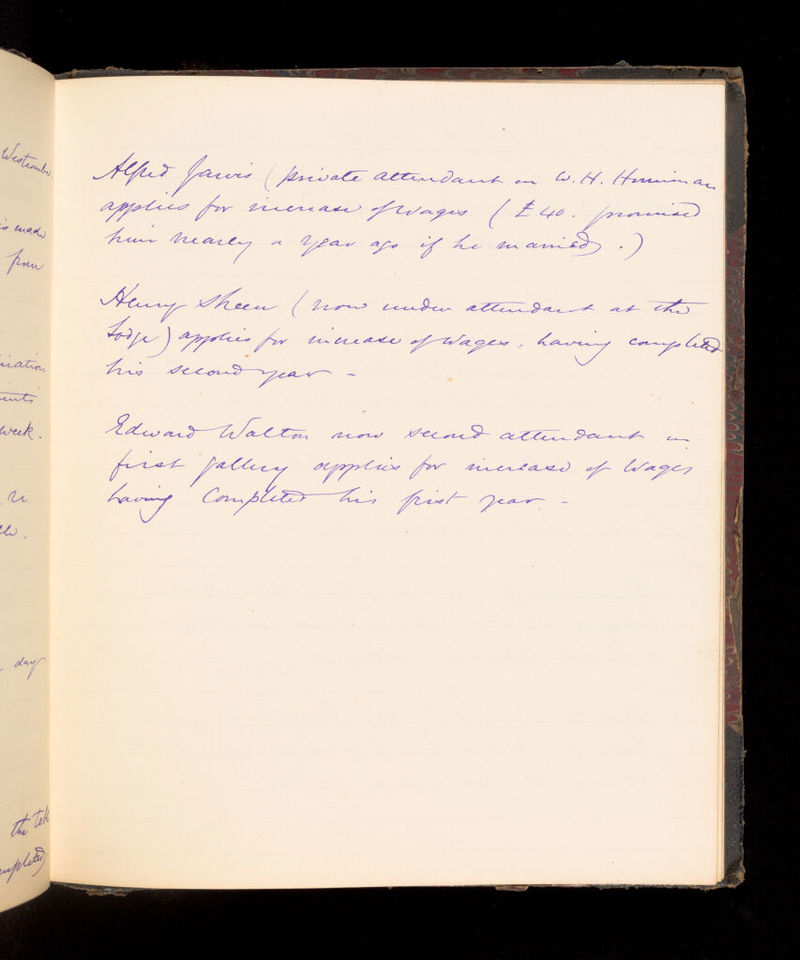 Westcombe
is made
from
week.
day
the table
completed
Alfred Jarvis (private attendant on W. H. Horniman
applies for increase of wages (£40. promised
him nearly a year ago if he married.)
Henry Skeen (now under attendant at the
Lodge) applies for increase of wages, having completed
his second year -
Edward Walton now second attendant in
first gallery applies for increase of Wages
having Completed his first year. -